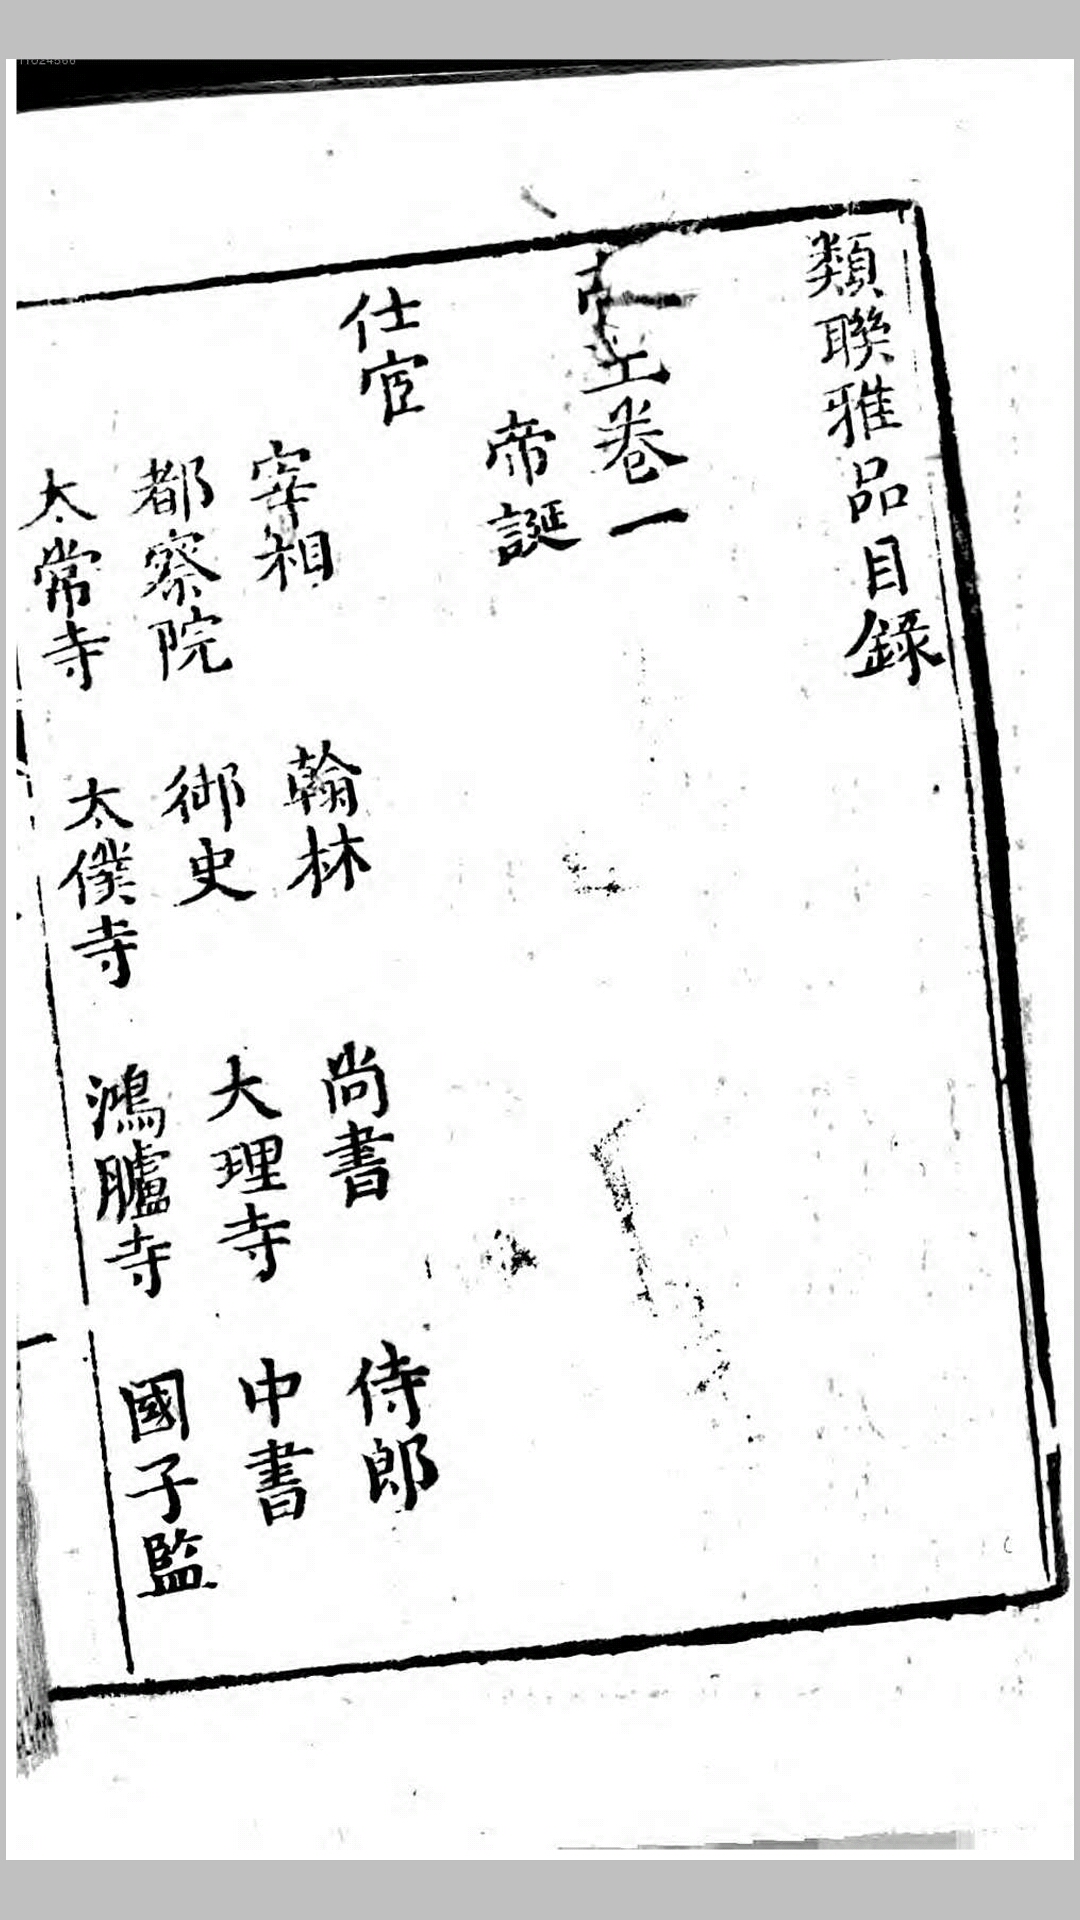 類聯雅品目錄
卷一
帝誕
仕宦
宰相 翰林 尚書 侍郎
都察院 御史 大理寺 中書
太常寺 太僕寺 鴻臚寺 國子監